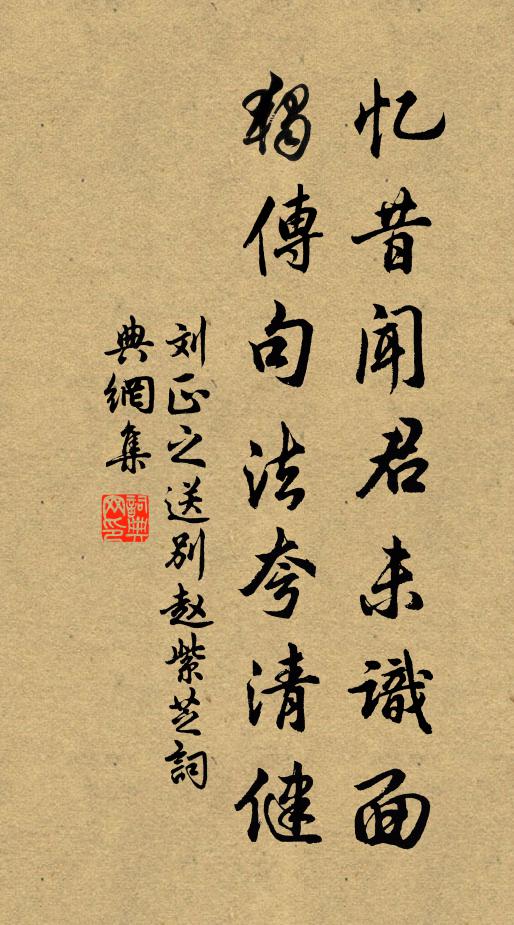 忆昔闻君未識面
獨傳句法夸清健
刘正之送别赵紫芝詞
典網集
詞典网印